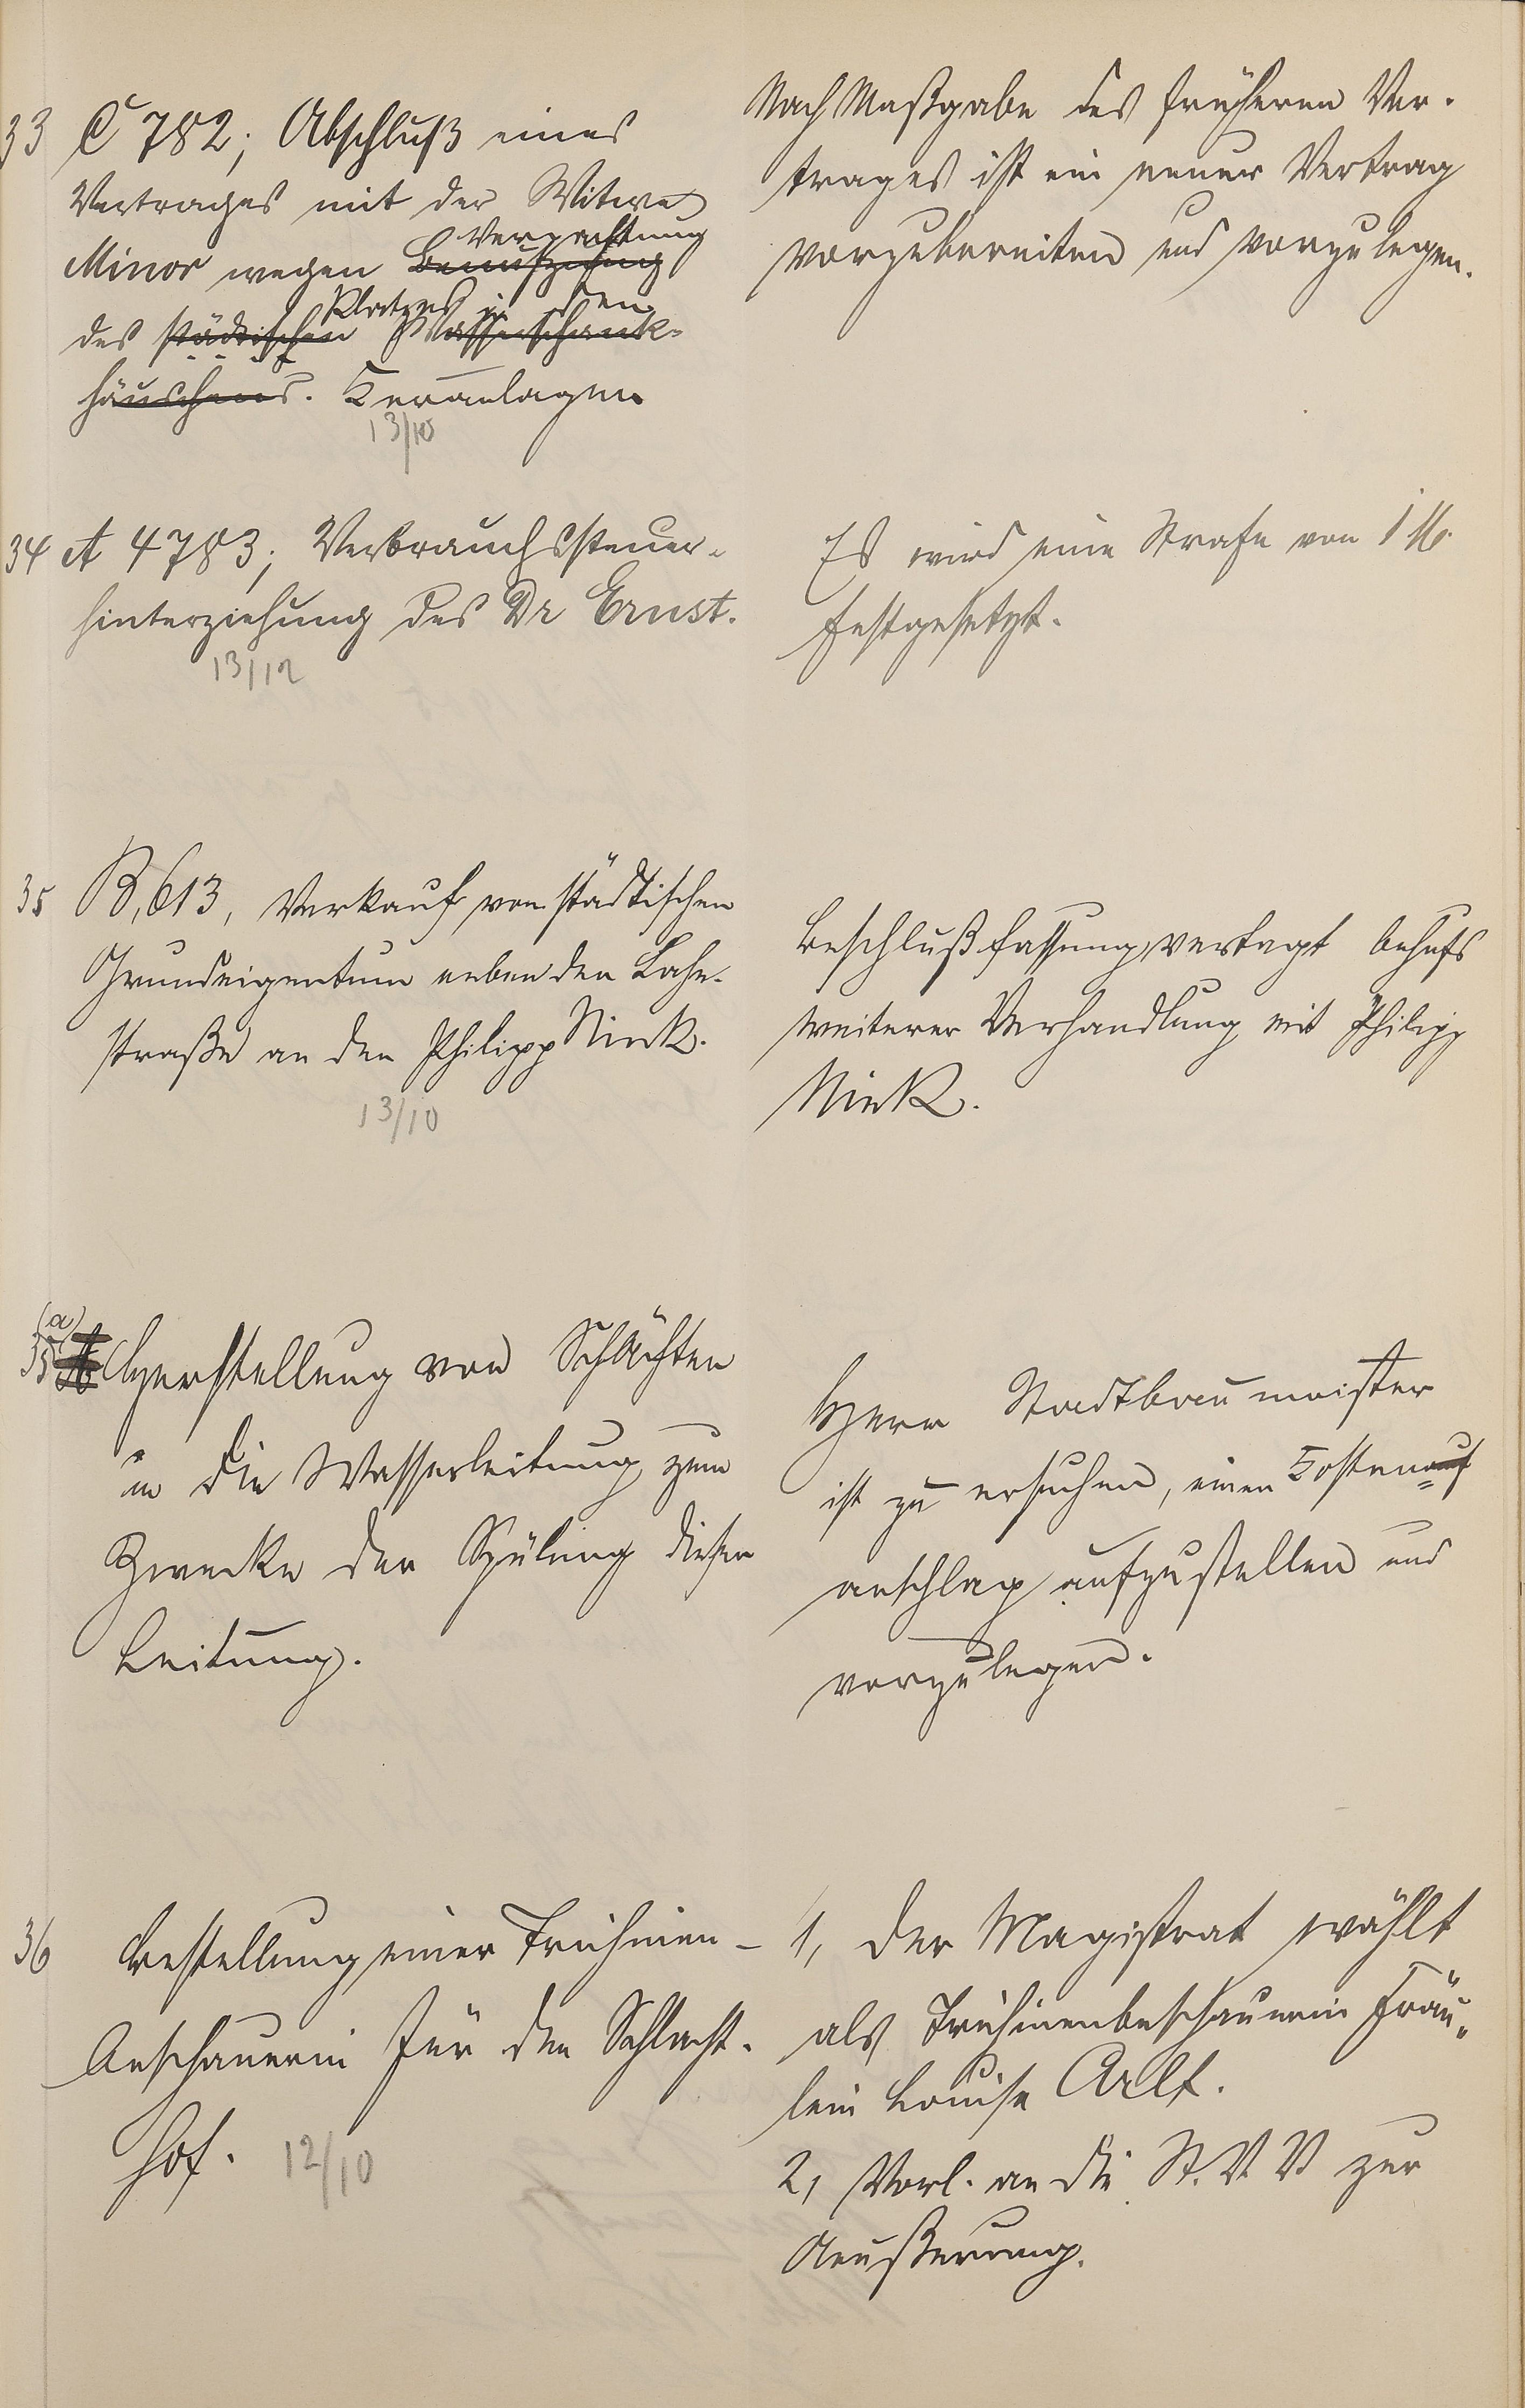 33 C 782; Abschluß eines
Vertrages mit der Witwe
Verpachtung
Minor wegen Benutzung
Platzes in den
des städtischen Wasserschank-
häuschens. Kuranlagen
13/10
Nach Maßgabe des früheren Ver-
trages ist ein neuer Vertrag
vorzubereiten und vorzulegen.
34 A 4783; Verbrauchssteuer-
hinterziehung des Dr Ernst.
13/12
Es wird eine Strafe von 1 M.
festgesetzt.
35 B, 613, Verkauf von städtischen
Grundeigentum neben der Lahn-
straße an den Philipp Nink.
13/10
Beschlußfassung vertagt behufs
weiterer Verhandlung mit Philipp
Nink.
(a)
35 Herstellung von Schächten
in die Wasserleitung zum
Zwecke der Spülung dieser
Leitung.
Herr Stadtbaumeister
ist zu ersuchen, einen Kostenauf
anschlag aufzustellen und
vorzulegen.
36 Bestellung einer Trichinen-
beschauerin für den Schlacht-
hof. 12/10
1, Der Magistrat wählt
als Trichinenbeschauerin Fräu-
lein Louise Arlt.
2, Vorl. an die St. V. V zur
Aeußerung.